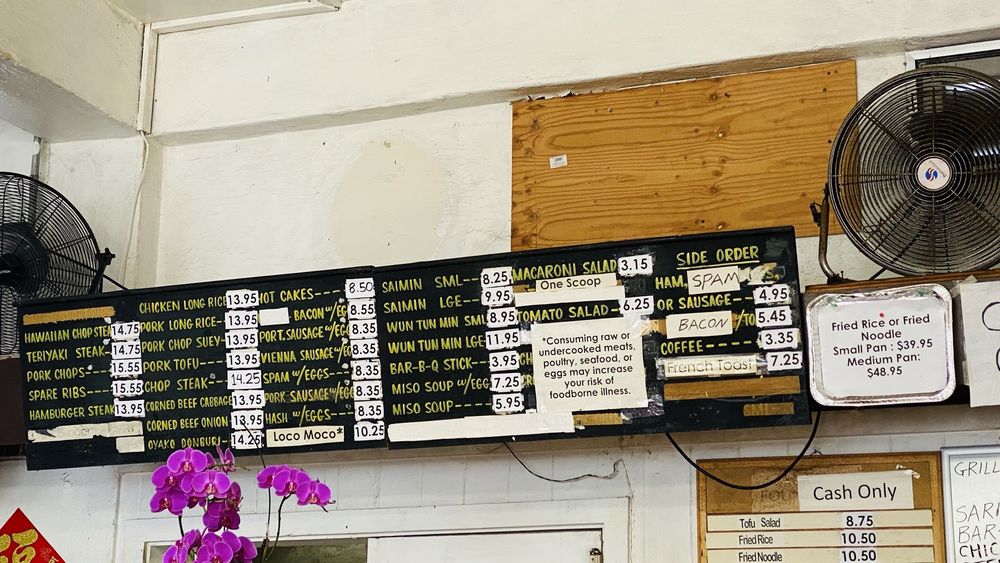 HAWAIIAN CHOP STEAK 14.75
TERIYAKI STEAK 14.75
PORK CHOPS 15.55
SPARE RIBS 15.55
HAMBURGER STEAK 13.95
CHICKEN LONG RICE 13.95
PORK LONG RICE 13.95
PORK CHOP SUEY 13.95
PORK TOFU 13.95
CHOP STEAK 14.25
CORNED BEEF CABBAGE 13.95
CORNED BEEF ONION 13.95
OYAKO DONBURI 14.25
HOT CAKES 8.50
BACON W/EGG 8.35
PORT. SAUSAGE W/EGG 8.35
VIENNA SAUSAGE W/EGG 8.35
SPAM W/EGGS 8.35
PORK SAUSAGE W/EGG 8.35
HASH W/EGGS 8.35
Loco Moco* 10.25
SAIMIN SML 8.25
SAIMIN LGE 9.95
WUN TUN MIN SML 8.95
WUN TUN MIN LGE 11.95
BAR-B-Q STICK 3.95
MISO SOUP W/EGG 7.25
MISO SOUP 5.95
MACARONI SALAD 3.15
One Scoop
TOMATO SALAD 6.25
*Consuming raw or
undercooked meats,
poultry, seafood, or
eggs may increase
your risk of
foodborne illness.
SIDE ORDER
HAM, SPAM
OR SAUSAGE 4.95
BACON 5.45
COFFEE 3.35
French Toast 7.25
Fried Rice or Fried
Noodle
Small Pan : $39.95
Medium Pan:
$48.95
Cash Only
Tofu Salad 8.75
Fried Rice 10.50
Fried Noodle 10.50
GRILL
SAR
BAR
CHIC